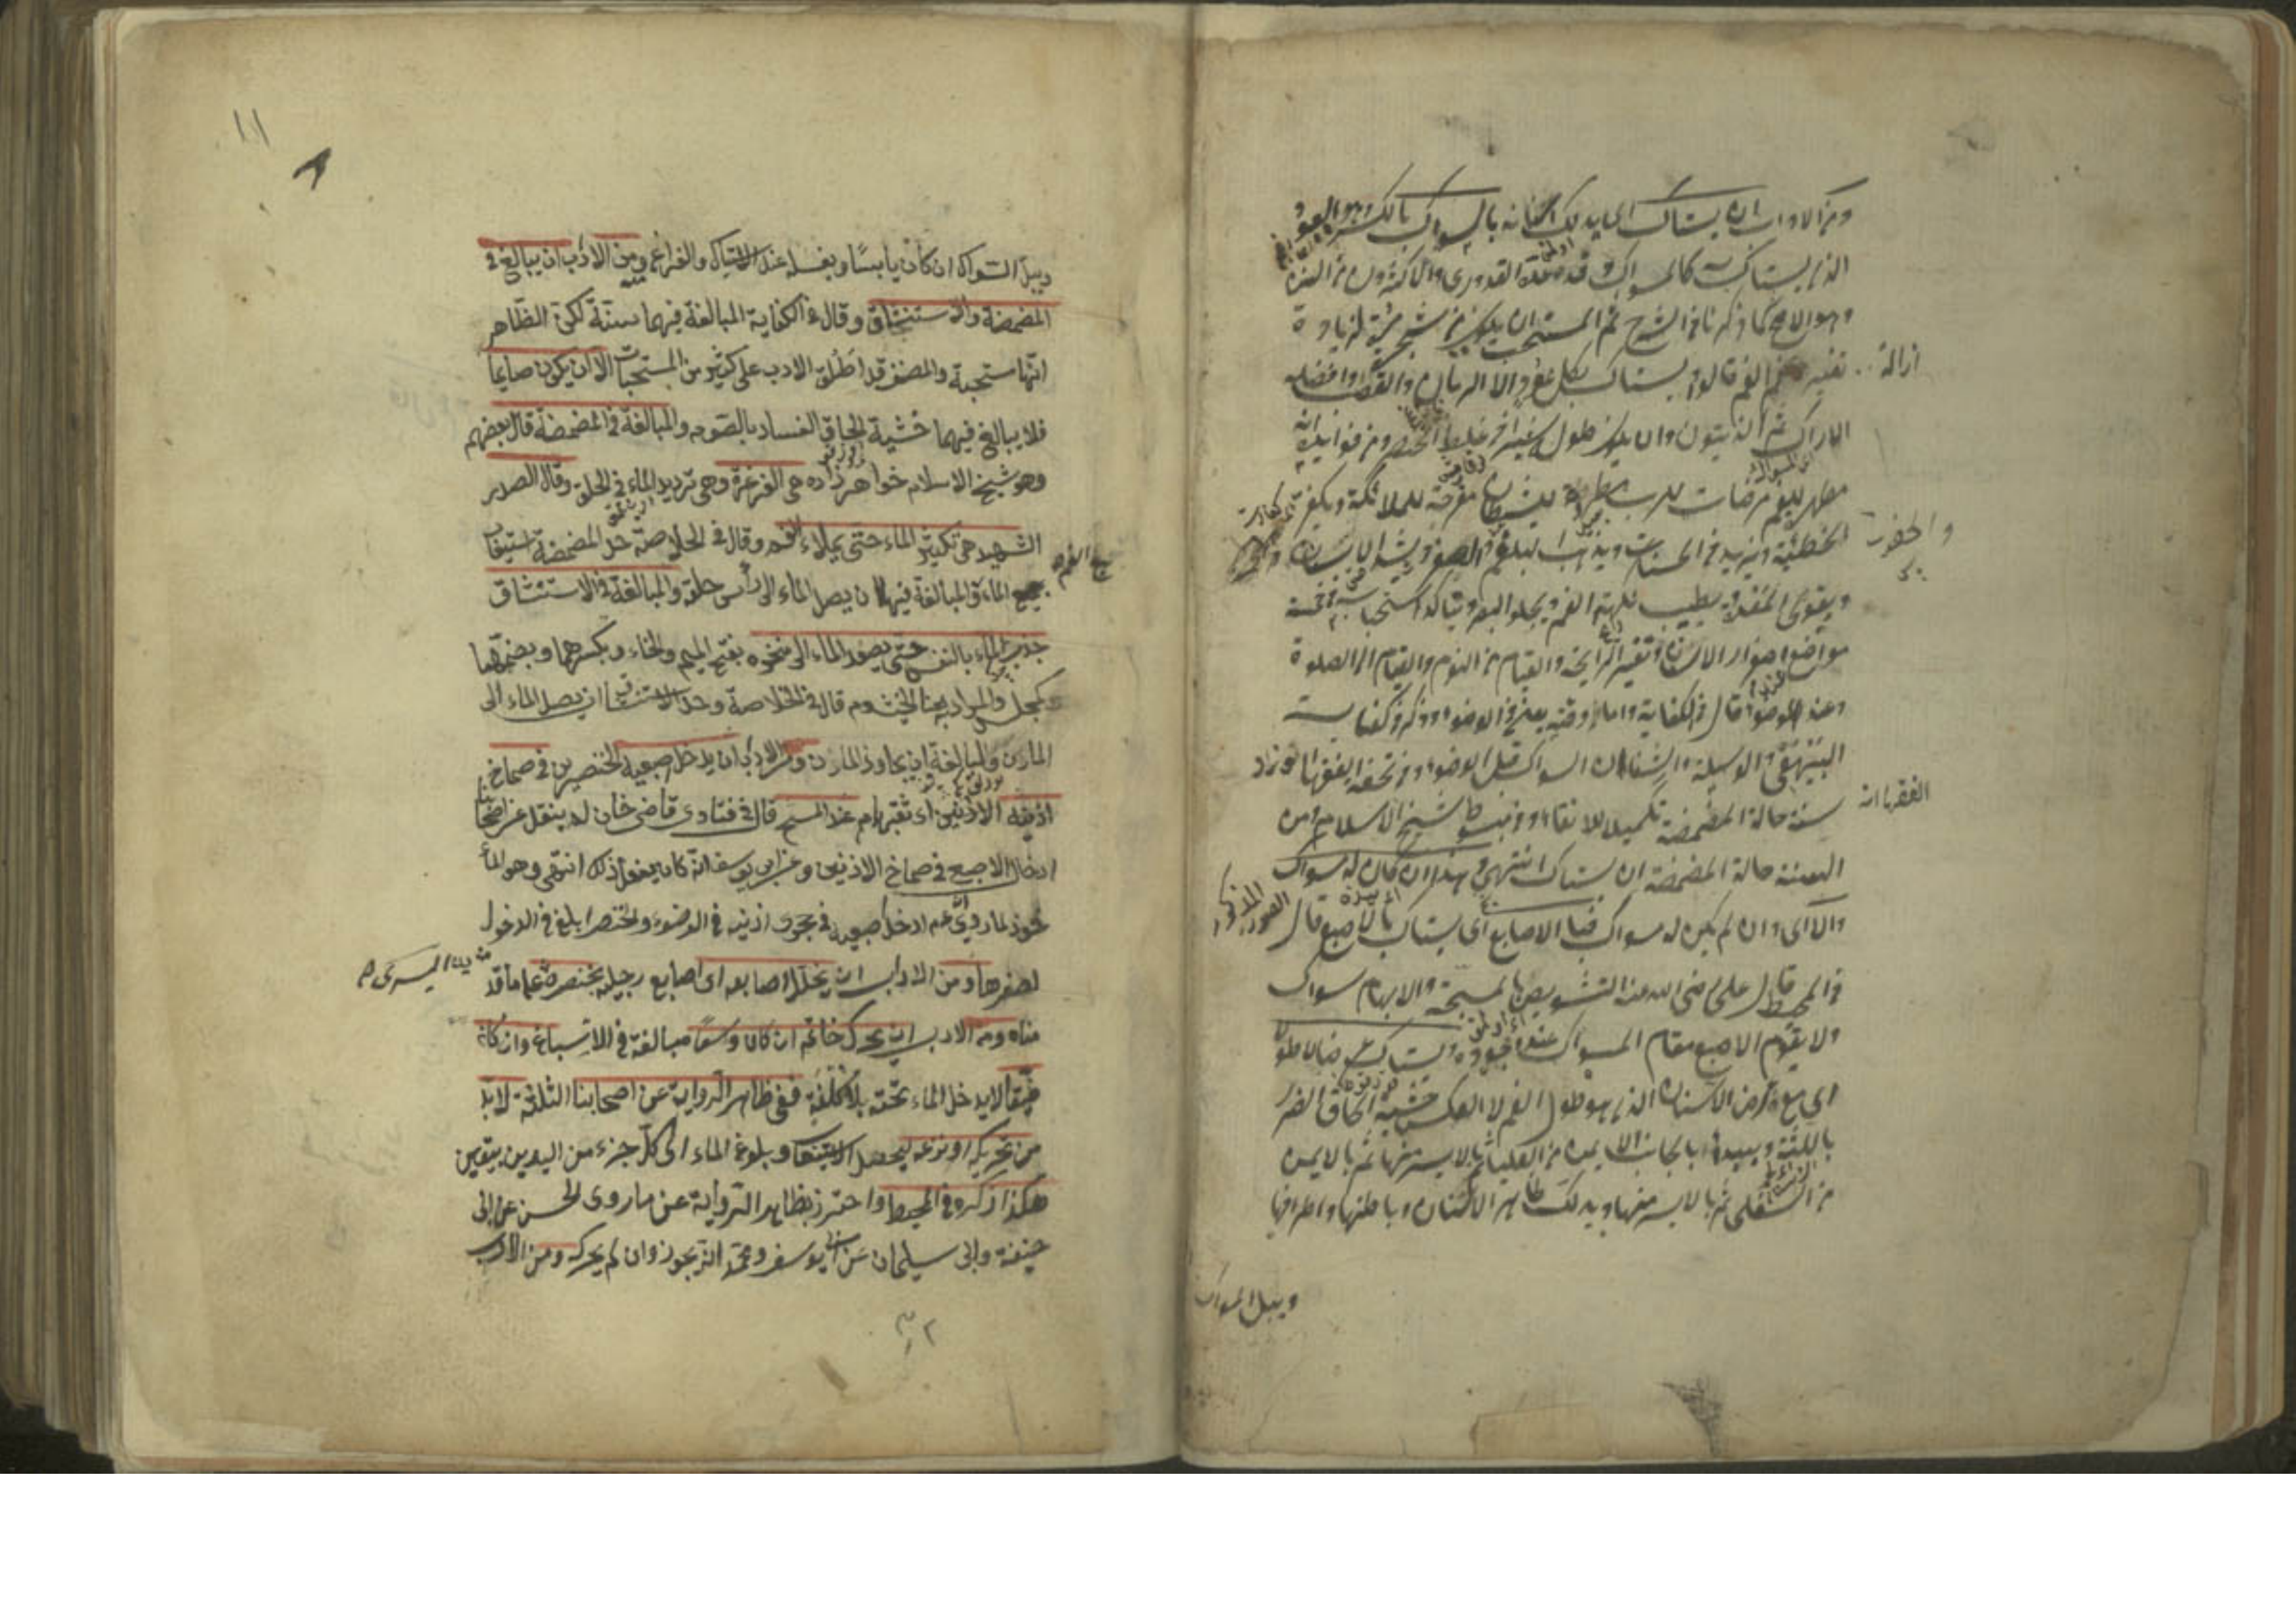 ومن الاداب ان يستاك اى يدلك اسنانه بالسواك بالكسر وهو العود
الذى يستاك به كالمسواك وقد عده القدورى والاكثرون من السنن
وهو الاصح كما ذكرنا فى الشرح ثم المستحب ان يكون من شجر مرة لزيادة
ازالة
تغير الفم قالوا يستاك بكل عود الا الرمان والقصب وافضله
الاراك ثم الزيتون وان يكون طول شبر فى غلظ الخنصر ومن فوايده انه
مطهر للفم مرضات للرب مطردة للشيطان مفرحة للملائكة ويكفر
الخطيئة ويزيد فى الحسنات ويذهب البلغم الصفر ويشد الاسنان و
ويقوى المعدة ويطيب نكهة الفم ويجلو البصر ويتأكد استحبابه فى خمسة
مواضع اصفرار الاسنان وتغير الرايحة والقيام من النوم والقيام الى الصلوة
وعند الوضوء قال فى الكفاية واما وقته يعنى فى الوضوء وذكر فى كفاية
البيهقى والوسيلة والشفاء ان السواك قبل الوضوء وفى تحفة الفقهاء
الفقهاء انه
سنة حالة المضمضة تكميلا للانقاء وفى مبسوط شيخ الاسلام ومن
السنة حالة المضمضة ان يستاك انتهى وهذا ان كان له سواك
والا اى وان لم يكن له سواك فبالاصابع اى يستاك بالاصبع قال
فى المحيط قال على رضى الله عنه التشويص بالمسبحة والابهام سواك
ولا يقوم الاصبع مقام المسواك عند وجوده ويستاك عرضا لا طولا
اى مع عرض الاسنان الذى هو طول الفم لا العكس خشية الحاق الضرر
باللثة ويبدء بالجانب الايمن من العليا ثم بالايسر منها ثم بالايمن
من السفلى ثم بالايسر منها ويدلك ظاهر الاسنان وباطنها واطرافها
ويبل السواك
١١
٨
ويبل السواك ان كان يابسا ويغسله عند الاستياك والفراغ ومن الادب ان يبالغ فى
المضمضة والاستنشاق وقال فى الكفاية المبالغة فيهما سنة لكن الظاهر
انها مستحبة والمصنف قد اطلق الادب على كثير من المستحبات الا ان يكون صايما
فلا يبالغ فيهما خشية الحاق الفساد بالصوم والمبالغة فى المضمضة قال بعضهم
وهو شيخ الاسلام خواهر زاده هى الغرغرة وهى ترديد الماء فى الحلق وقال الصدر
الشهيد هى تكثير الماء حتى يملاء الفم وقال فى الخلاصة حد المضمضة استيعاب
جميع الفم
جميع الماء والمبالغة فيها ان يصل الماء الى رأس حلقه والمبالغة فى الاستنشاق
جذب الماء بالنفس حتى يصعد الماء الى منخره بفتح الميم والخاء وبكسرهما وبضمهما
كمجلس والمراد به هنا الخيشوم قال فى الخلاصة وحد الاستنشاق ان يصل الماء الى
المارن والمبالغة ان يجاوز المارن ومن الادب ان يدخل اصبعيه الخنصرين فى صماخ
اذنيه الاذنين اى ثقبهما عند المسح قال فى فتاوى قاضى خان لم ينقل عن اصحابنا
ادخال الاصبع فى صماخ الاذنين وعن ابى يوسف انه كان يفعل ذلك انتهى وهو المأ
خوذ لما روى انه عم ادخل اصبعيه فى حجرى اذنيه فى الوضوء والخنصر ابلغ فى الدخول
لصغرها ومن الاداب ان يخلل اصابعه اى اصابع رجليه بخنصر يده اليسرى على ما قد
مناه ومن الادب ان يحرك خاتمه ان كان واسعا مبالغة فى الاسباغ وان كان
ضيقا لا يدخل الماء تحته بلا كلفة ففى ظاهر الرواية عن اصحابنا الثلثة لابد
من تحريكه او نزعه ليحصل الاستيعاب وبلوغ الماء الى كل جزء من اليدين بيقين
هكذا ذكره فى المحيط واحترز بظاهر الرواية عن ما روى الحسن عن ابى
حنيفة وابى سليمان عن ابى يوسف ومحمد انه يجوز وان لم يحركه ومن الادب